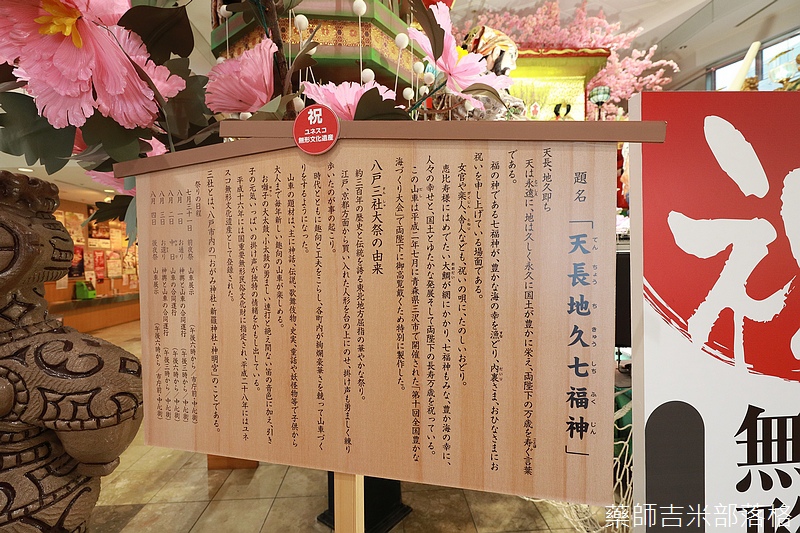 祝
ユネスコ
無形文化遺産
題名「天長地久七福神」
てんちょうちきゅうしちふくじん
天長、地久即ち
天は永遠に、地は久しく永久に国土が豊かに栄え、両陛下の万歳を寿ぐ言葉
である。
福の神である七福神が、豊かな海の幸を漁どり、内裏さま、おひなさまにお
祝いを申し上げている場面である。
女官や楽人、令人なども、祝いの唄に、たのしいおどり。
恵比寿様にはめでたい大鯛が網にかかり、七福神もみな、豊かな海の幸に、
人々の幸せと、国土とみたかな発展そして両陛下の長寿万歳を祝っている。
この山車は平成二年七月に青森県三沢市で開催された「第十回全国豊かな
海づくり大会」で両陛下に御高覧戴くため特別に製作した。
八戸三社大祭の由来
約三百年の歴史と伝統を誇る東北地方屈指の華やかな祭り。
江戸、京都方面から買い入れた人形を台の上にのせ、掛け声も勇ましく練り
歩いたのが事の起こり。
時代とともに趣向と工夫をこらし、各町内が絢爛豪華さを競って山車づく
りをするようになった。
山車の題材は、主に神話、伝説、歌舞伎物、史実、童話や妖怪物等で子供から
大人まで毎年新しい趣向の山車が楽しめる。
お囃子の大太鼓、小太鼓の勇ましい連打と絶え間ない笛の音色に加え、引き
子の元気いっぱいの掛け声が独特の情緒をかもし出している。
平成十六年には国重要無形民俗文化財に指定され、平成二十八年にはユネ
スコ無形文化遺産として登録された。
三社とは、八戸市内の「おがみ神社・新羅神社・神明宮」のことである。
祭りの日程
七月三十一日 前夜祭 山車展示
八月 一日 お通り 神輿と山車の合同運行
八月 二日 中日 山車の合同運行
八月 三日 お還り 神輿と山車の合同運行
八月 四日 後夜祭 山車展示
祝
無
藥師吉米部落格